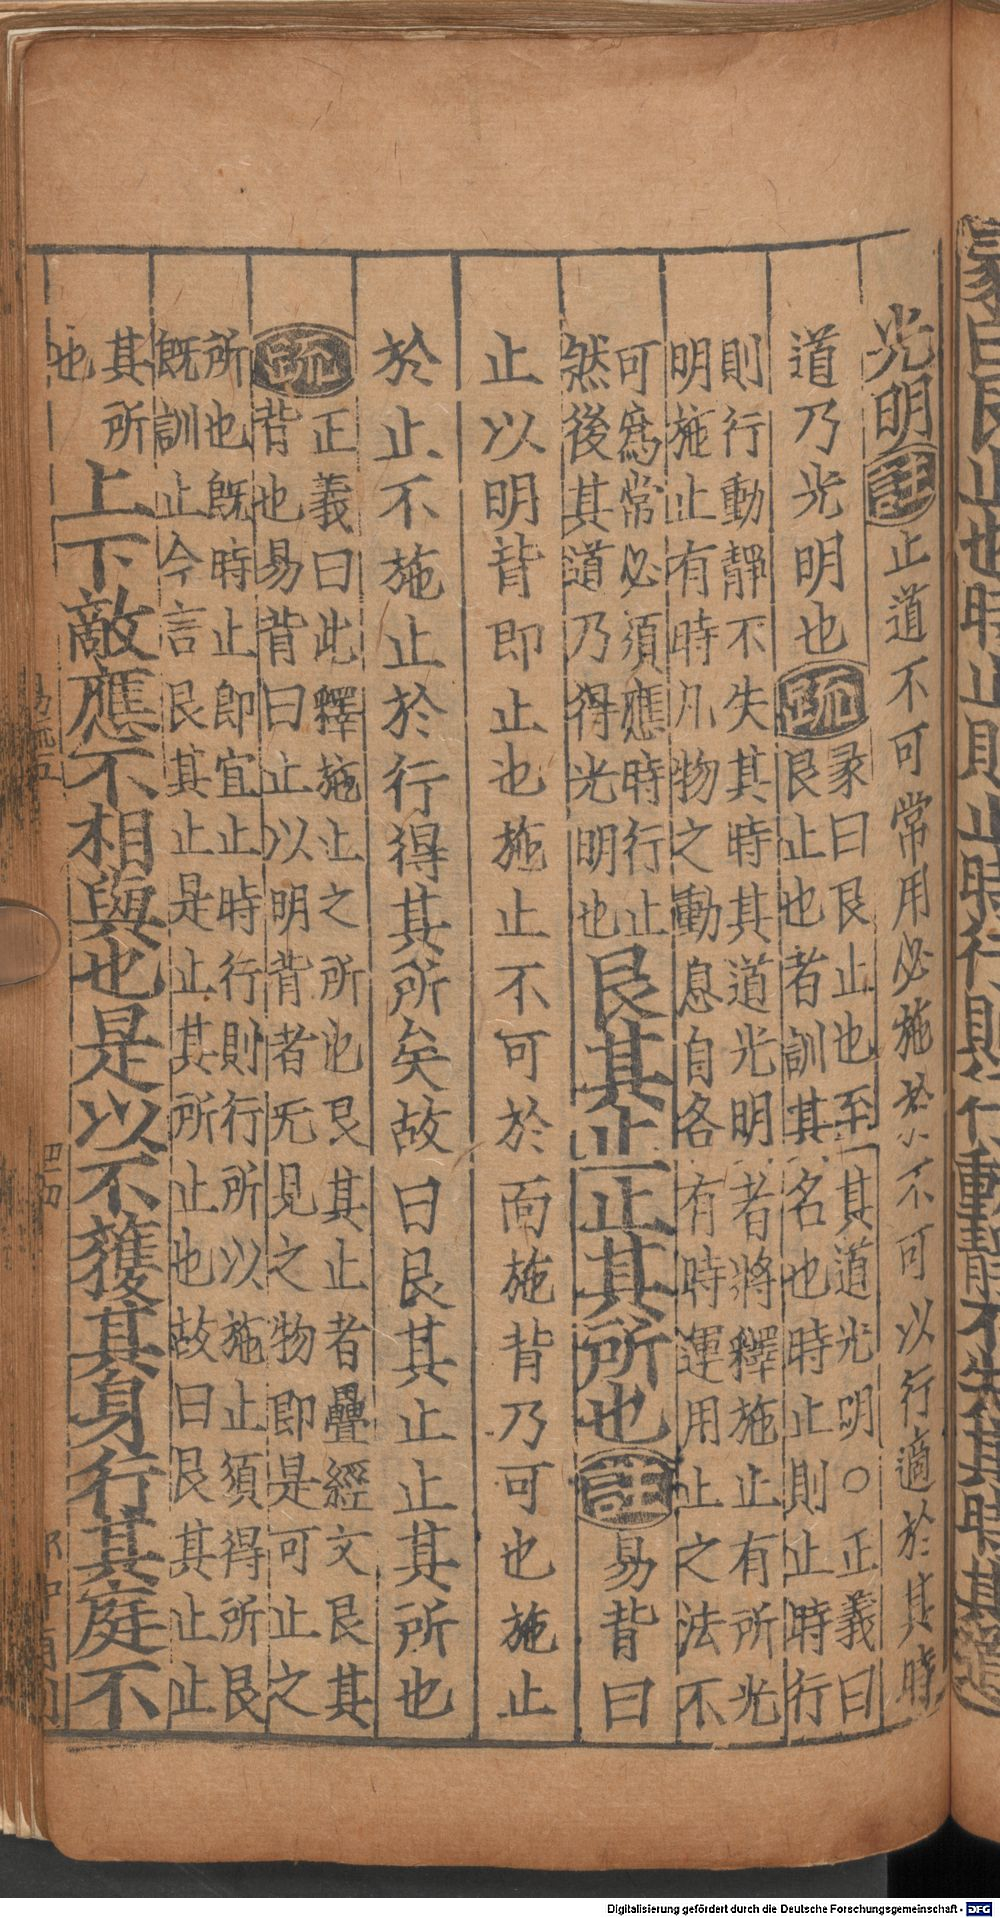 光明註止道不可常用必施於不可以行適於其時
道乃光明也疏彖曰艮止也至其道光明○正義曰
艮止也者訓其名也時止則止時行
則行動靜不失其時其道光明者將釋施止有所光
明施止有時凡物之動息自各有時運用止之法不
可爲常必須應時行止
然後其道乃得光明也
艮其止止其所也註易背曰
止以明背即止也施止不可於面施背乃可也施止
於止不施止於行得其所矣故曰艮其止止其所也
疏正義曰此釋施止之所也艮其止者疊經文艮其
背也易背曰止以明背者无見之物即是可止之
所也旣時止即宜止時行則行所以施止須得所艮
旣訓止今言艮其止是止其所止也故曰艮其止止
其所
也
上下敵應不相與也是以不獲其身行其庭不
Digitalisierung gefördert durch die Deutsche Forschungsgemeinschaft - DFG